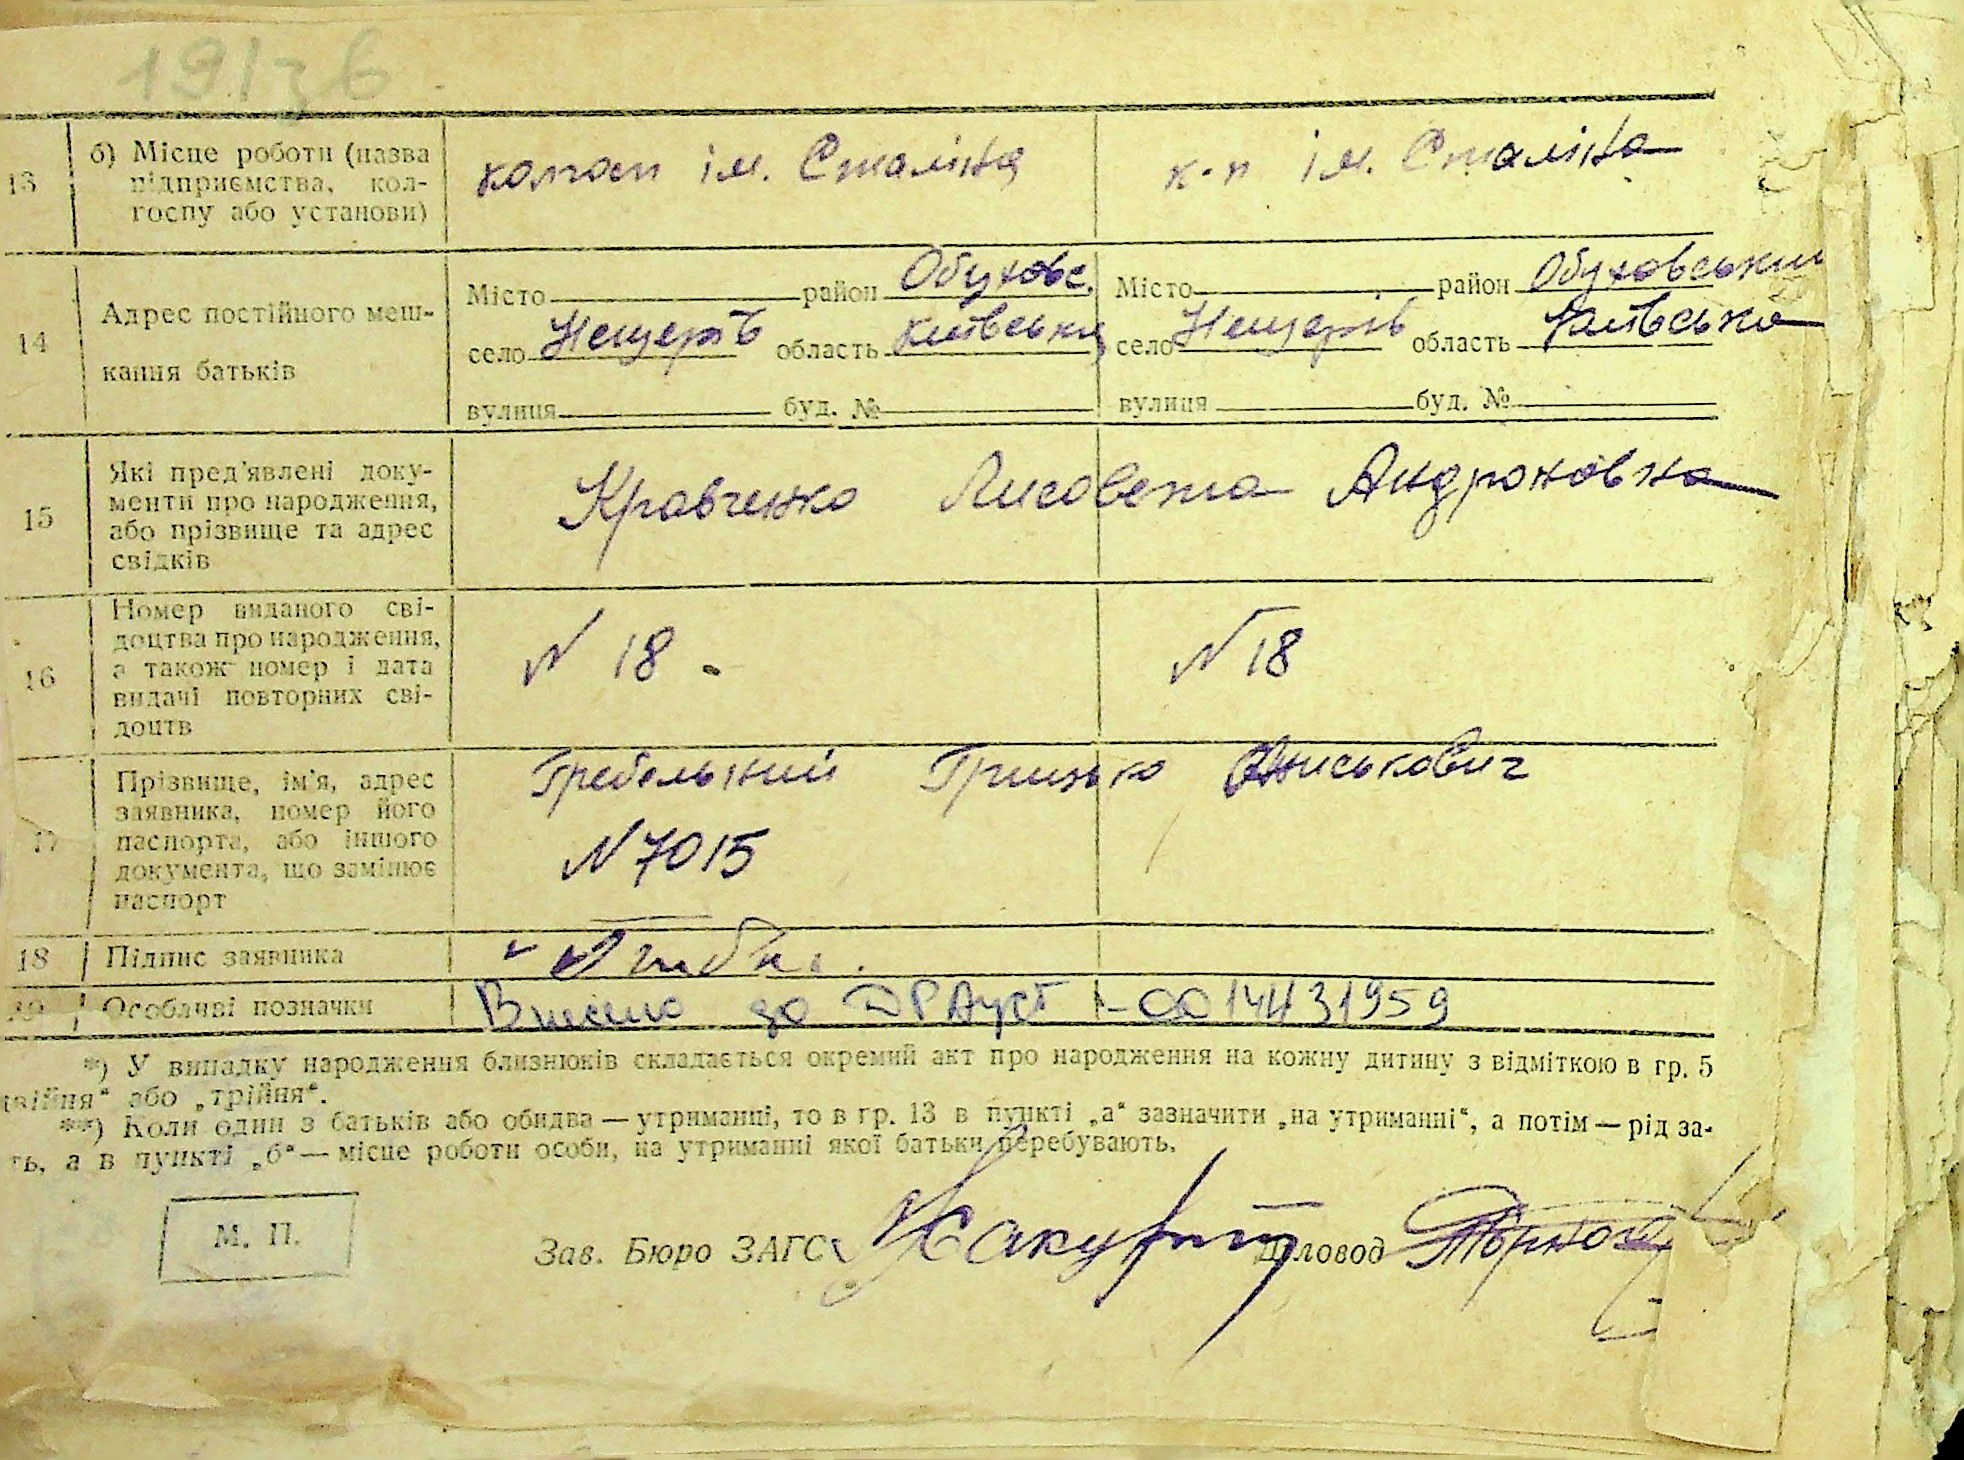 191зв
13 б) Місце роботи (назва підприємства, колгоспу або установи) колгосп ім. Сталіна к-п ім. Сталіна
14 Адрес постійного мешкання батьків
Місто район Обухово. Місто район Обуховський
село Нещерів область Київська село Нещерів область Київська
вулиця буд. № вулиця буд. №
15 Які пред'явлені документи про народження, або прізвище та адрес свідків Кравченко Лисовета Андроновна
16 Номер виданого свідоцтва про народження, а також номер і дата видачі повторних свідоцтв N 18 N 18
17 Прізвище, ім'я, адрес заявника, номер його паспорта, або іншого документа, що замінює паспорт Гребельний Грицько
N 7015
18 Підпис заявника
19 Особливі позначки Внесено до ДРАЦСГ - 00144431959
*) У випадку народження близнюків складається окремий акт про народження на кожну дитину з відміткою в гр. 5
двійня" або „трійня".
**) Коли один з батьків або обидва — утриманці, то в гр. 13 в пункті „а" зазначити „на утриманні", а потім — рід за-
ть, а в пункті „б" — місце роботи особи, на утриманні якої батьки перебувають.
М. П.
Зав. Бюро ЗАГС Діловод